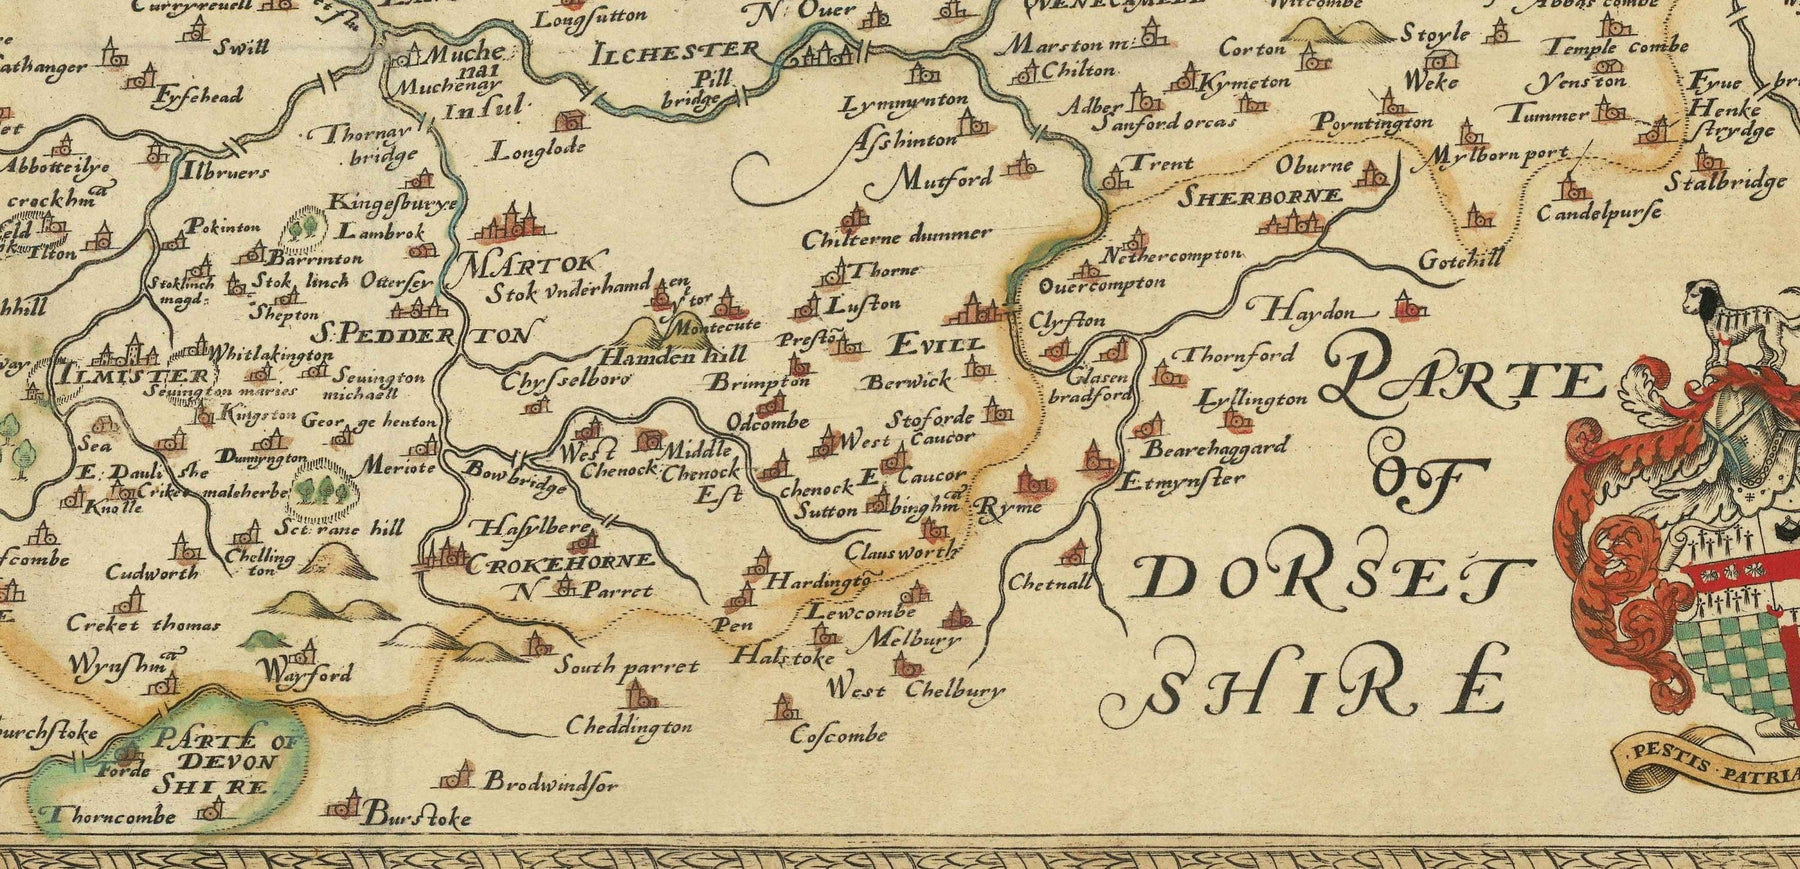 Swill
Longsutton
N: Ouer
Witcombe
Fysehead
Muche
nai
Muchenay
Insul:
ILCHESTER
Pill
bridge
Marston m:
Chilton
Corton
Stoyle
Weke
Temple combe
Yenston
Lymmynton
Adber
Kymeton
Sanford orcas
Poyntington
Tummer
Henke
strydge
Thornay
bridge
Longlode
Asshinton
Mutford
Trent
Oburne
Mylborn port
Stalbridge
Abbotteilye
Ilbruers
SHERBORNE
Candelpurse
Kingesburye
Pokinton
Lambrok
Barrinton
Ilton
MARTOK
Chilterne dummer
Nethercompton
Gotehill
Stoklinch
magd:
Stok linch Ottersey
Shepton
Stok vnderhamd en
Thorne
Ouercompton
Luston
Clyfton
Haydon
S. PEDDERTON
Montecute
Hamden hill
Presto
EVILL
Whitlakington
ILMISTER
Seuington maries
Seuington
michaell
Chysselboro
Brimpton
Berwick
Glasen
bradford
Thornford
Lyllington
PARTE
OF
DORSET
SHIRE
Kingston
George henton
Odcombe
Stoforde
West Caucor
Bearehaggard
Sea
Dunnyngton
Meriote
Bow bridge
West
Chenock
Middle
Chenock
Est
chenock
E: Caucor
Etmynster
E: Daulishe
Criket maleherbe
Knolle
Sutton binghm̄
Ryme
Setrane hill
Hasylbere
Clausworth
Chelling
ton
Cudworth
CROKEHORNE
N Parret
Hardingtō
Chetnall
Creket thomas
Pen
Lewcombe
Melbury
Halstoke
Wynshm̄
Wayford
South parret
West Chelbury
Cheddington
Coscombe
PARTE OF
DEVON
SHIRE
Forde
Thorncombe
Brodwindsor
Burstoke
PESTIS PATRIA